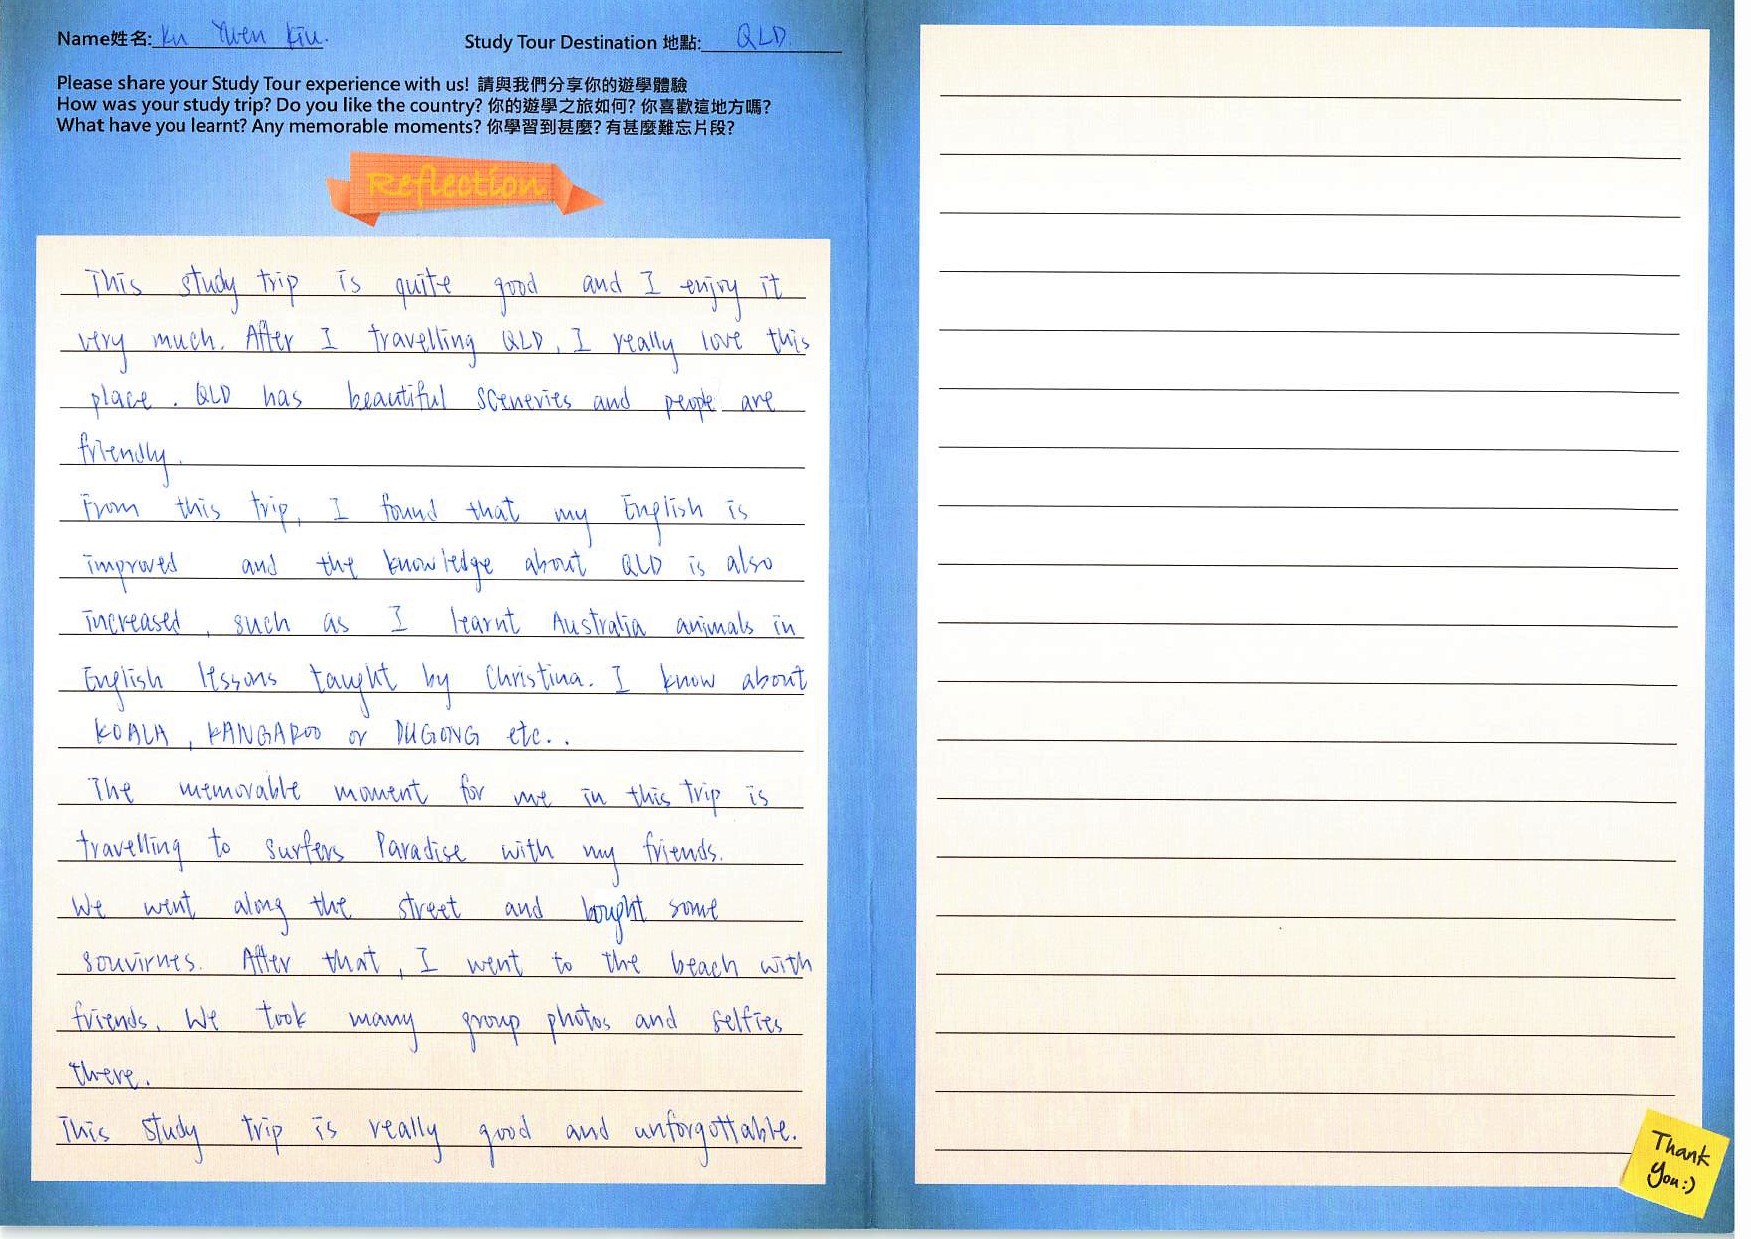 Name姓名: Ku Yuen Kiu.
Study Tour Destination 地點: QLD
Please share your Study Tour experience with us! 請與我們分享你的遊學體驗
How was your study trip? Do you like the country? 你的遊學之旅如何? 你喜歡這地方嗎?
What have you learnt? Any memorable moments? 你學習到甚麼? 有甚麼難忘片段?
Reflection
This study trip is quite good and I enjoy it
very much. After I travelling QLD, I really love this
place. QLD has beautiful sceneries and people are
friendly.
From this trip, I found that my English is
improved and the knowledge about QLD is also
increased, such as I learnt Australia animals in
English lessons taught by Christina. I know about
KOALA, KANGAROO or DUGONG etc..
The memorable moment for me in this trip is
travelling to Surfers Paradise with my friends.
We went along the street and bought some
souvirnes. After that, I went to the beach with
friends. We took many group photos and selfies
there.
This study trip is really good and unforgottable.
Thank
you:)